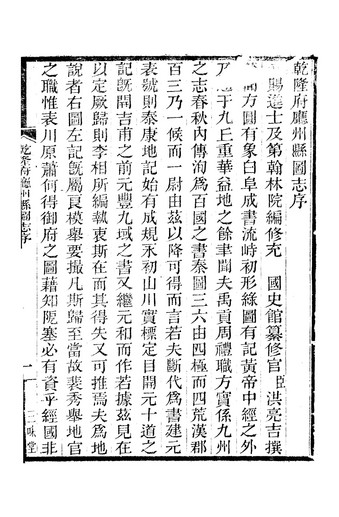 乾隆府廳州縣圖志序
賜進士及第翰林院編修充 國史館纂修官臣洪亮吉撰
方圓有象白阜成書流峙初形綠圖有記黃帝中經之外
于九丘重華益地之餘聿聞夫禹貢周禮職方實係九州
之志春秋內傳洵為百國之書秦圖三六由四極而四荒漢郡
百三乃一候而一尉由茲以降可得而言若夫斷代為書建元
表號則泰康地記始有成規永初山川實標定目開元十道之
記既開吉甫之前元豐九域之書又繼元和而作若據茲見在
以定厥歸則李相所編執衷斯在而其得失又可推焉夫為地
說者右圖左記既屬具模舉要撮凡斯歸至當故裴秀舉地官
之職惟表川原蕭何得御府之圖藉知阨塞必有資乎經國非
乾隆府廳州縣圖志序
一
三味堂